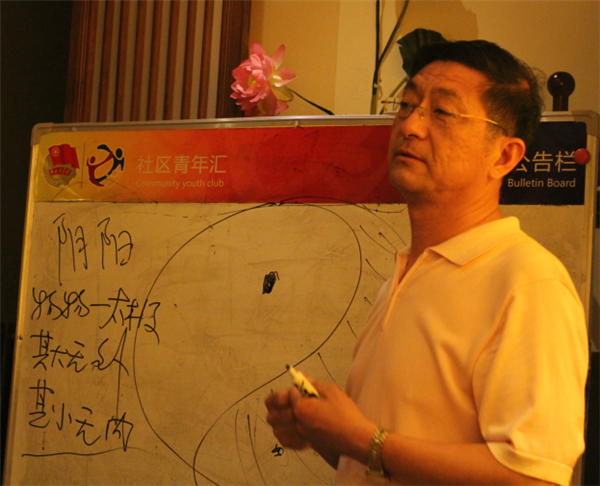 社区青年汇
Community youth club
公告栏
Bulletin Board
阴阳
物物一太极
其大无外
其小无内